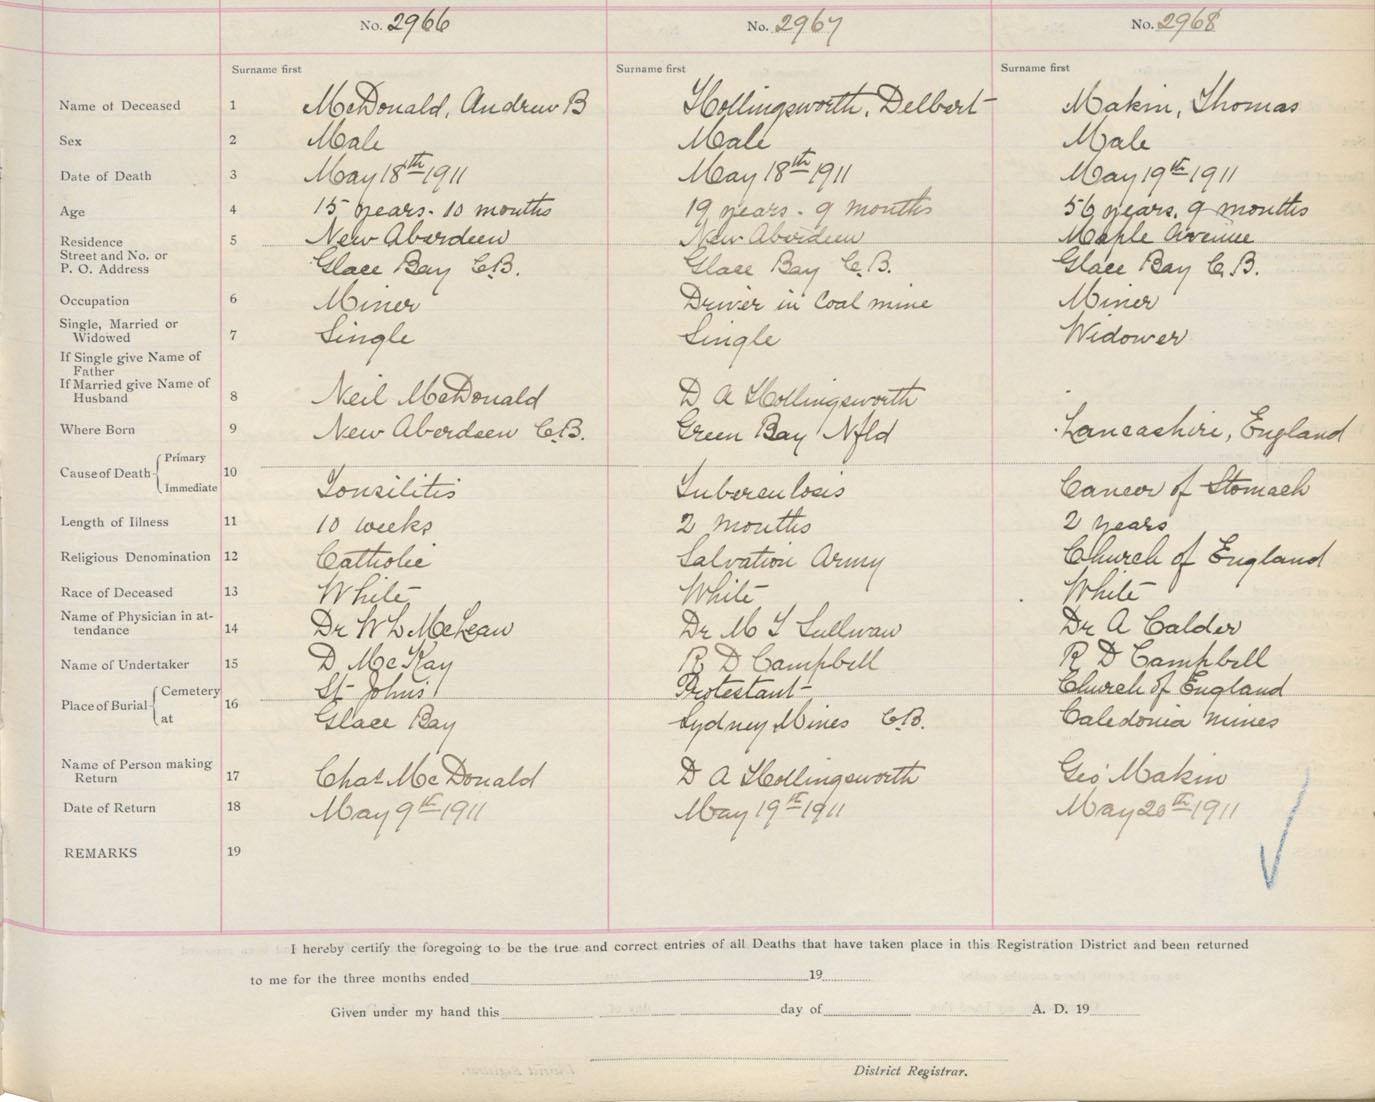 No. 2966 No. 2967 No. 2968
Surname first Surname first Surname first
Name of Deceased 1 McDonald, Andrew B Hollingsworth, Delbert Makin, Thomas
Sex 2 Male Male Male
Date of Death 3 May 18th 1911 May 18th 1911 May 19th 1911
Age 4 15 years. 10 months 19 years. 9 months 56 years, 9 months
Residence 5 New Aberdeen New Aberdeen Maple Avenue
Street and No. or
P. O. Address Glace Bay C.B. Glace Bay C.B. Glace Bay C.B.
Occupation 6 Miner Driver in Coal mine Miner
Single, Married or
Widowed 7 Single Single Widower
If Single give Name of
Father
If Married give Name of
Husband 8 Neil McDonald D A Hollingsworth
Where Born 9 New Aberdeen C.B. Green Bay Nfld Lancashire, England
Cause of Death Primary 10
Immediate Tonsilitis Tuberculosis Cancer of Stomach
Length of Illness 11 10 weeks 2 months 2 years
Religious Denomination 12 Catholic Salvation Army Church of England
Race of Deceased 13 White White White
Name of Physician in at-
tendance 14 Dr W L McLean Dr M T Sullivan Dr A Calder
Name of Undertaker 15 D McKay R D Campbell R D Campbell
Place of Burial Cemetery 16 St Johns Protestant Church of England
at Glace Bay Sydney Mines C.B. Caledonia mines
Name of Person making
Return 17 Chas McDonald D A Hollingsworth Geo Makin
Date of Return 18 May 9th 1911 May 19th 1911 May 20th 1911
REMARKS 19
I hereby certify the foregoing to be the true and correct entries of all Deaths that have taken place in this Registration District and been returned
to me for the three months ended 19
Given under my hand this day of A. D. 19
District Registrar.